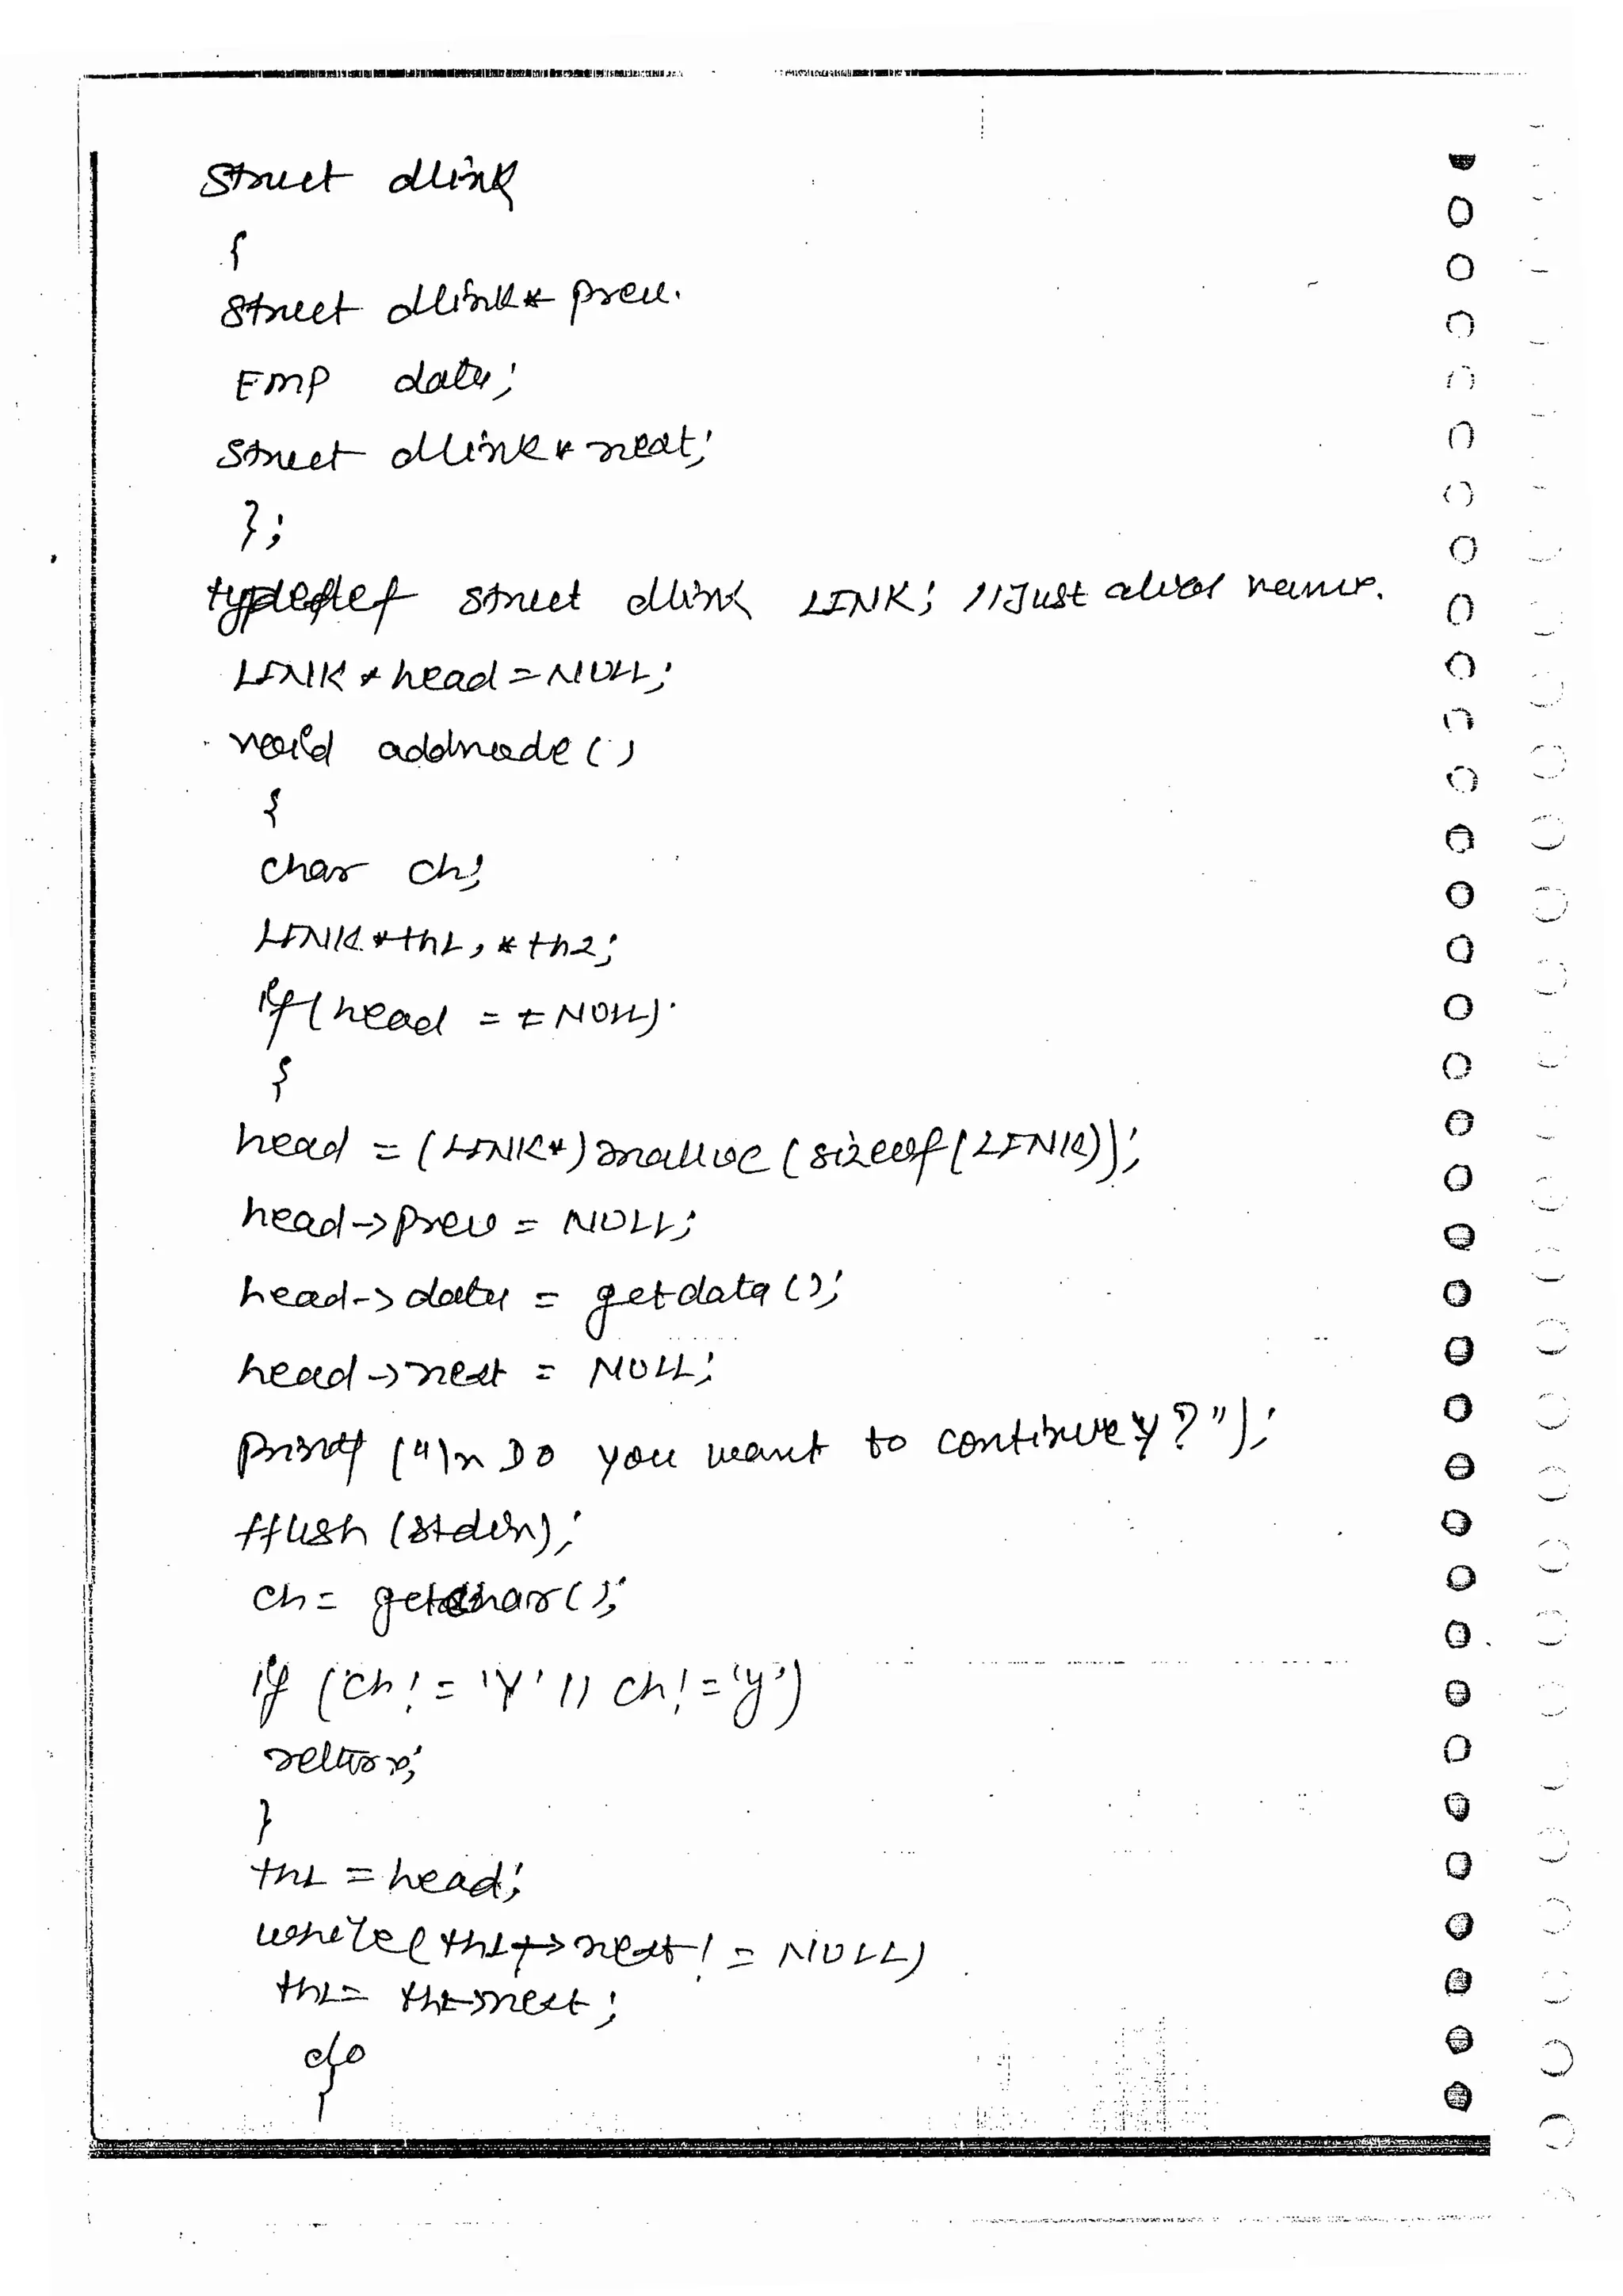 struct dlink
{
struct dlink* prev.
Emp data;
struct dlink* next;
};
typedef struct dlink LINK; //Just alias name.
LINK * head = NULL;
void addnode ()
{
char ch;
LINK *th1, *th2;
if (head == NULL)
{
head = (LINK*) malloc (sizeof (LINK));
head->prev = NULL;
head->data = getdata ();
head->next = NULL;
printf ("\n Do you want to continue y?");
fflush (stdin);
ch = getchar ();
if (ch! = 'Y' || ch! = 'y')
return;
}
th1 = head;
while (th1->next! = NULL)
th1 = th1->next;
do
{